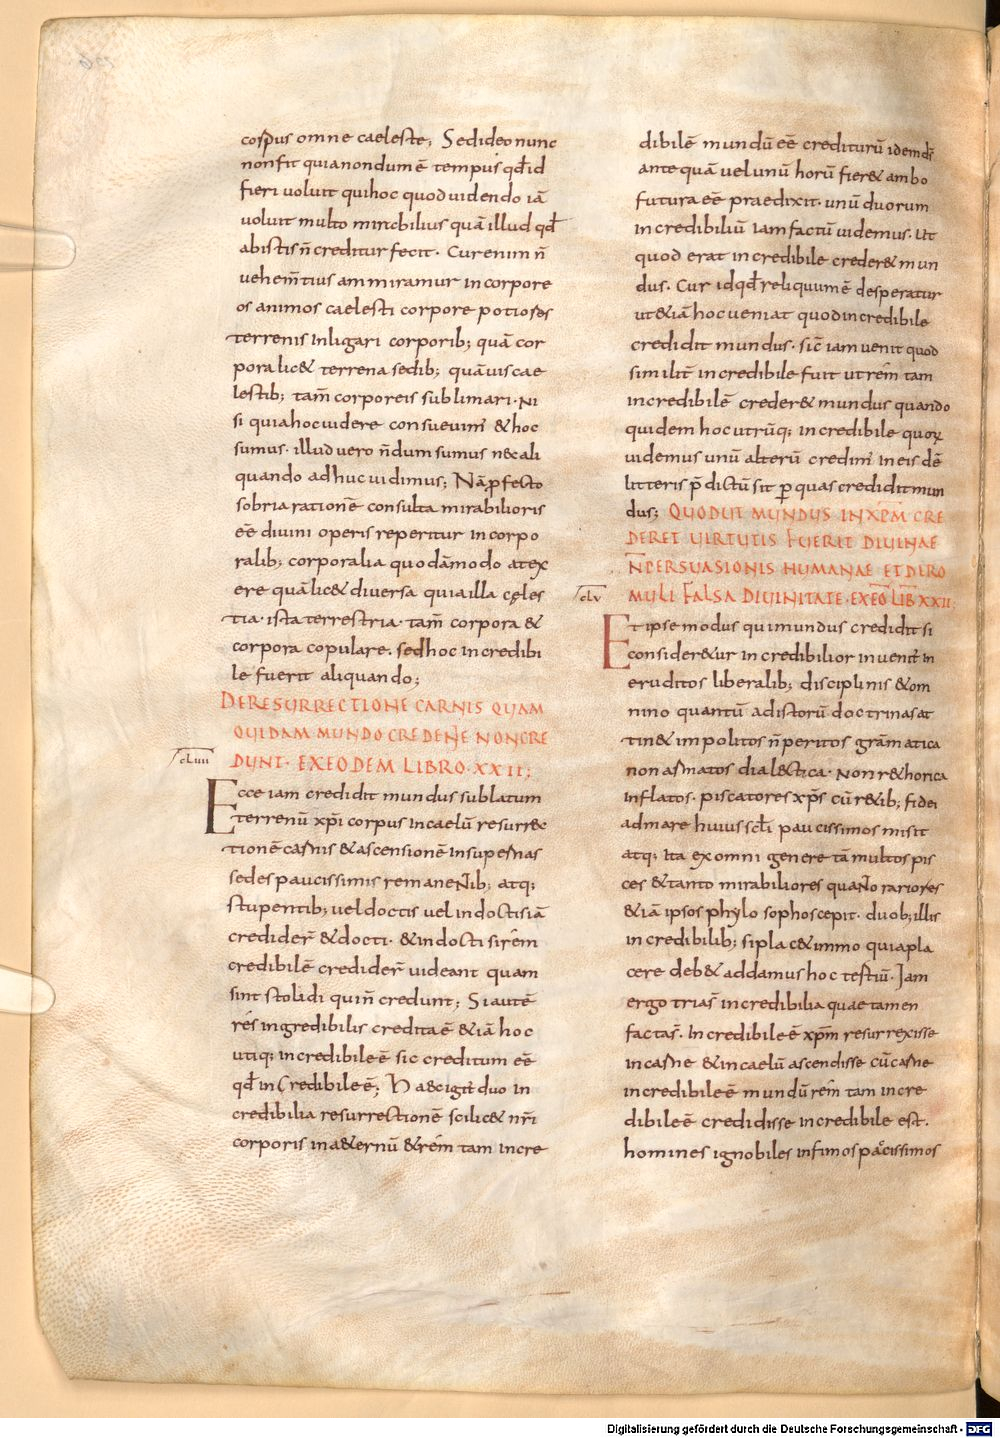 corpus omne caeleste; Sed ideo nunc
non fit quia nondum ē tempus qd̄ id
fieri voluit qui hoc quod videndo iā
voluit multo mirabilius quā illud qd̄
ab istis n̄ creditur fecit. Cur enim n̄
vehem̄tius ammiramur incorpore
os animos caelesti corpore potiores
terrenis inligari corporib; quā cor
pora lic& terrena sedib; quāvis cae
lestib; tam̄ corporeis sublimari. Ni
si quia hoc videre consuevim̄ & hoc
sumus. illud vero n̄dum sumus nec ali
quando adhuc vidimus; Nā profecto
sobria ratione consulta mirabilioris
eē divini operis reperitur incorpo
ralib; corporalia quodāmodo atex
ere quā lic& diversa quia illa cęles
tia. ista terrestria. tam̄ corpora &
corpora copulare. sed hoc incredibi
le fuerit aliquando;
DE RESURRECTIONE CARNIS QUAM
QUIDAM MUNDO CREDENTE NON CRE
DUNT. EX EODEM LIBRO. XXII;
cLIIII
Ecce iam credidit mundus sublatum
terrenū xp̄i corpus in caelū resurrec
tionē carnis & ascensionē in supernas
sedes paucissimis remanentib; atq;
stupentib; vel doctis vel indoctis iā
credider̄ & docti. & indocti si rem̄
credibilē credider̄ videant quam
sint stolidi qui n̄ credunt; Si autē
res ingredibilis credita ē &iā hoc
utiq; incredibile ē sic creditum eē
qd̄ incredibile ē; Haec igit̄ duo in
credibilia resurrectionē scilic& nr̄i
corporis in a&ernū & rem̄ tam incre
dibilē mundū eē crediturū idem ds̄
antequā vel unū horū fier& ambo
futura eē praedixit. unū duorum
incredibiliū iam factū videmus. ut
quod erat incredibile creder& mun
dus. Cur id qd̄ reliquum ē desperatur
ut &iā hoc veniat quod incredibile
credidit mundus. sic̄ iam venit quod
similit̄ incredibile fuit ut rem̄ tam
incredibilē creder& mundus quando
quidem hoc utrūq; incredibile quorꝝ
videmus unū alterū credim̄ in eis dē
litteris p̄dictū sit ꝑ quas credidit mun
dus; QUOD UT MUNDUS IN XPM̄ CRE
DERET VIRTUTIS FUERIT DIVINAE
N̄ PERSUASIONIS HUMANAE ET DE RO
MULI FALSA DIVINITATE. EX EŌ LIB̄ XXII;
cLV
Et ipse modus qui mundus credidit si
consider&ur incredibilior invenit̄ in
eruditos liberalib; disciplinis & om
nino quantū ad istorū doctrinas at
tin& impolitos n̄ peritos grāmatica
non armatos dial&tica. Non r&horica
inflatos. piscatores xp̄s cū r&ib; fidei
ad mare huius sc̄li paucissimos misit
atq; ita ex omni genere tā multos pis
ces & tanto mirabiliores quanto rariores
&iā ipsos phylosophos cepit. duob; illis
incredibilib; si plac& immo quia pla
cere deb& addamus hoc tertiū. Jam
ergo tria sn̄ incredibilia quae tamen
facta sn̄. Incredibile ē xpm̄ resurrexisse
in carne & in caelū ascendisse cū carne
incredibile ē mundū rem̄ tam incre
dibile ē credidisse incredibile est.
homines ignobiles infimos paucissimos
Digitalisierung gefördert durch die Deutsche Forschungsgemeinschaft - DFG